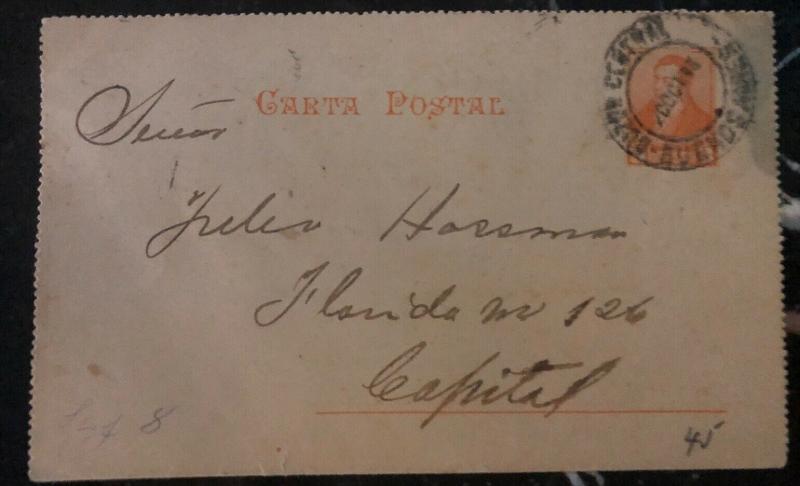 CARTA POSTAL
Señor
Julio Hossman
Florida No 126
Capital
45
8
BUZON CENTRAL
BUENOS